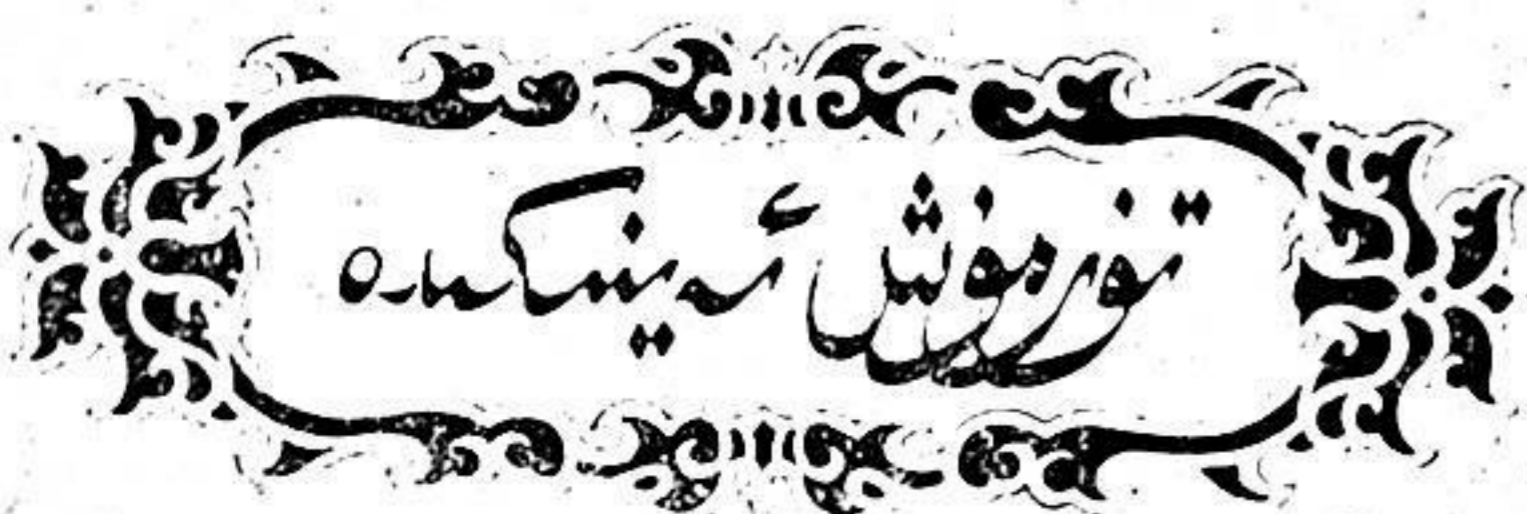 تۇرمۇش ئەينىكىدە